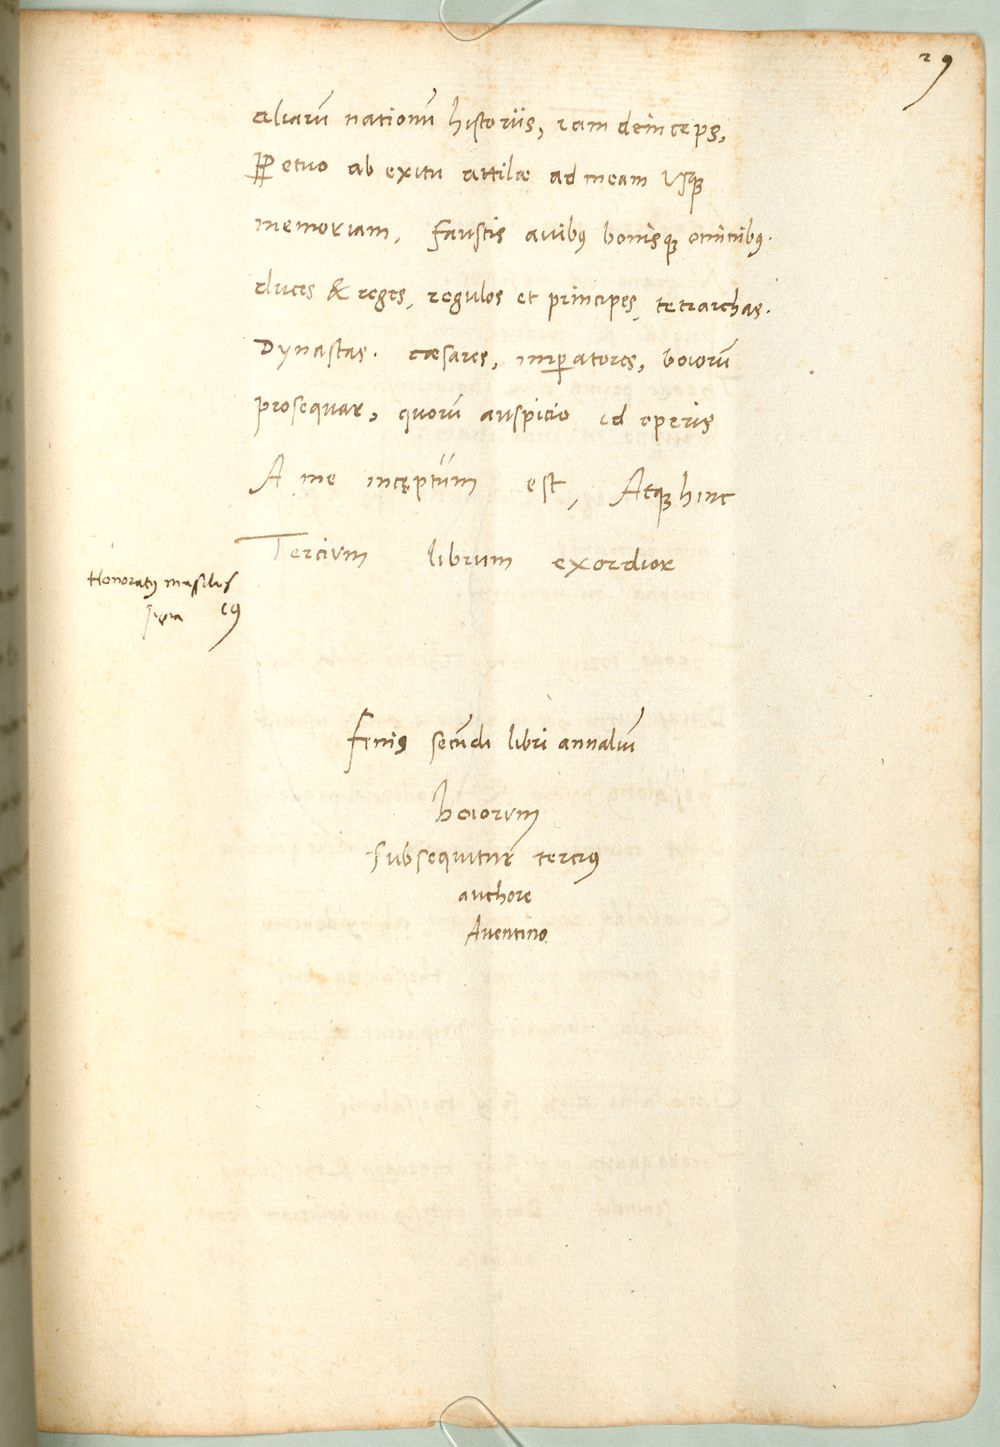 29
aliarū nationū historiis, iam deinceps,
Ꝑpetuo ab exitu attilæ ad meam usqꝫ
memoriam, faustis avibꝰ bonisqꝫ ominibꝰ.
duces & reges, regulos et principes, tetrarchas.
Dynastas. cæsares, imꝑatores, boiorū
prosequar, quorū auspicio id operis
A me incęptum est, Atqꝫ hinc
Tercium librum exordior
Honoratꝰ massilies
19
Finis secūdi libri annaliū
boiorum
Subsequitur terciꝰ
authore
Aventino